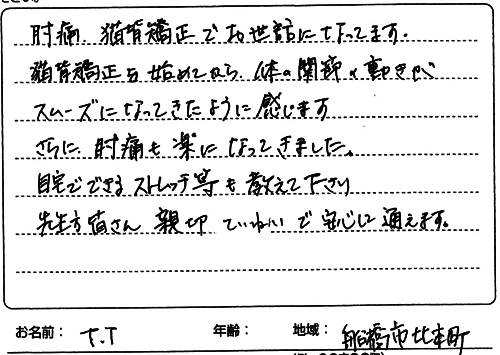 肘痛、猫背矯正でお世話になってます。
猫背矯正を始めてから、体の関節の動きが
スムーズになってきたように感じます
さらに、肘痛も楽になってきました。
自宅でできるストレッチ等も教えて下さり
先生方皆さん 親切 ていねいで安心して通えます。
お名前: T.T 年齢: 地域: 船橋市北本町